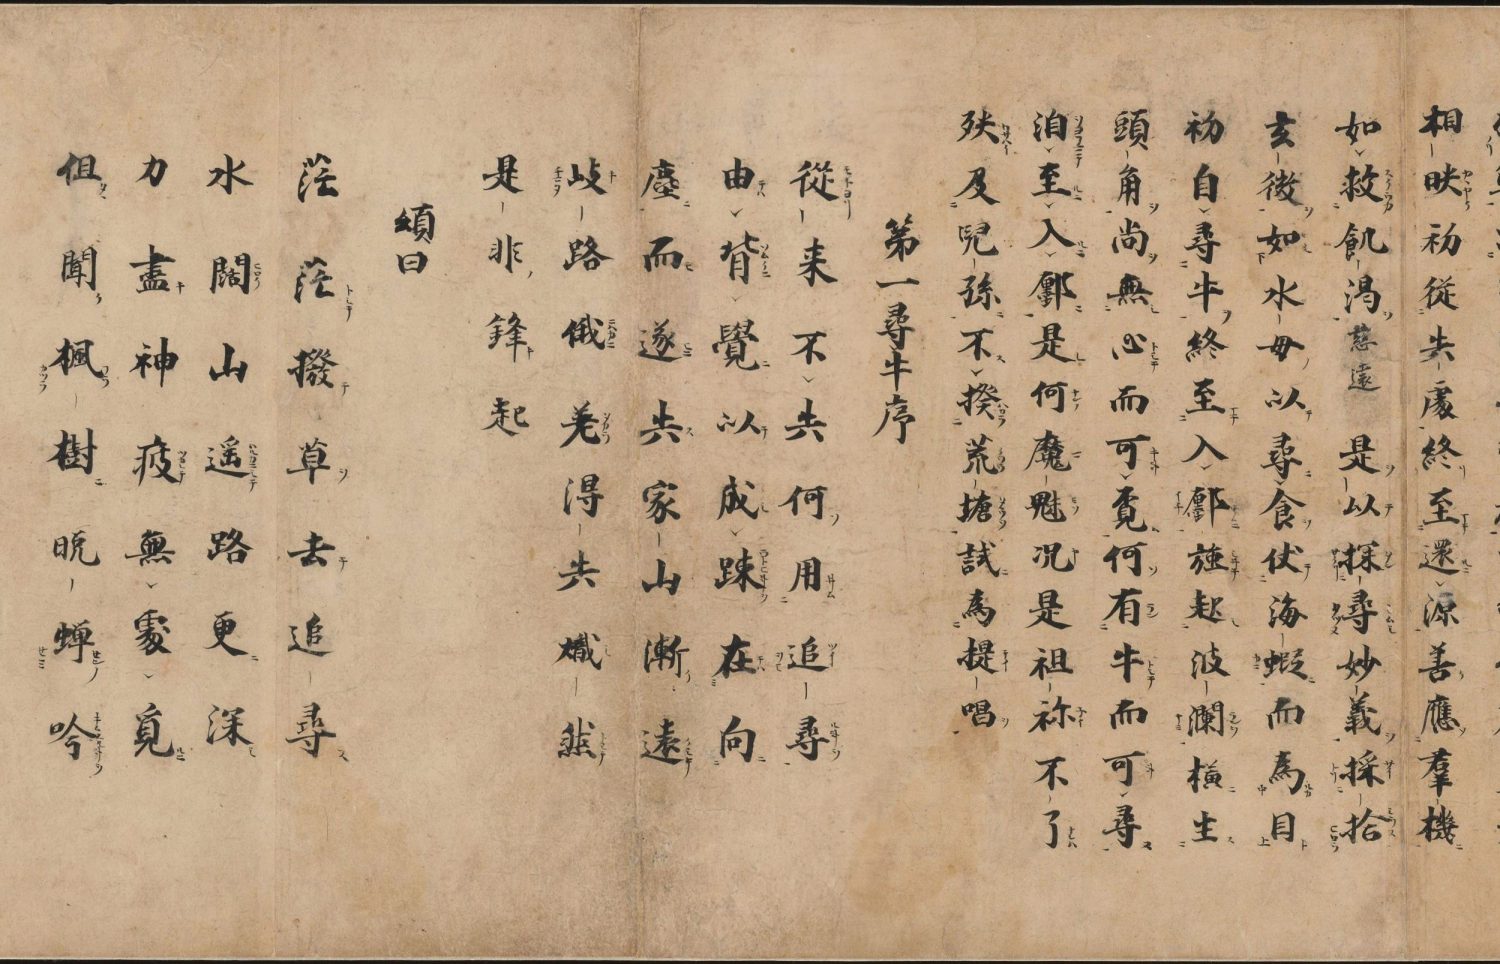 相映初從失處終至還源善應羣機
如救飢渴慈遠是以探尋妙義採拾
玄微如水母以尋食依海蝦而為目
初自尋牛終至入鄽強起波瀾橫生
頭角尚無心而可覓何有牛而可尋
洎至入鄽是何魔魅况是祖祢不了
殃及兒孫不揆荒塘試為提唱
第一尋牛序
從来不失何用追尋
由背覺以成踈在向
塵而遂失家山漸遠
岐路俄差得失熾然
是非鋒起
頌曰
茫茫撥草去追尋
水闊山遥路更深
力盡神疲無處覓
但聞楓樹晚蝉吟